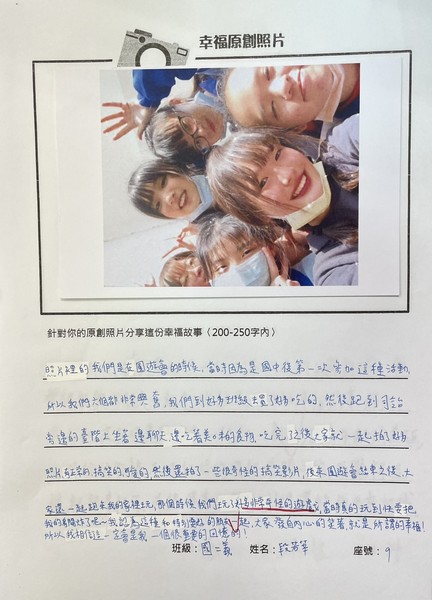 幸福原創照片
針對你的原創照片分享這份幸福故事（200-250字內）
照片裡的我們是在園遊會的時候，當時因為是國中後第一次參加這種活動，
所以我們六個都非常興奮，我們到好多班級去買了好多吃的，然後跑到司令
台邊的臺階上坐著邊聊天，邊吃著美味的食物，吃完了之後大家就一起拍了好多
照片，正常的、搞笑的、可愛的，然後還拍了一些很奇怪的搞笑影片，後來園遊會結束之後，大
家還一起跑來我的家裡玩，那個時候我們玩了好多非常奇怪的遊戲，當時真的玩到快要把
我的房間炸了呢～我認為這種和特別要好的朋友一起，大家發自內心的笑著，就是所謂的幸福！
所以我相信這一定會是我一個很重要的回憶的！
班級：國二義 姓名：段若 座號：9